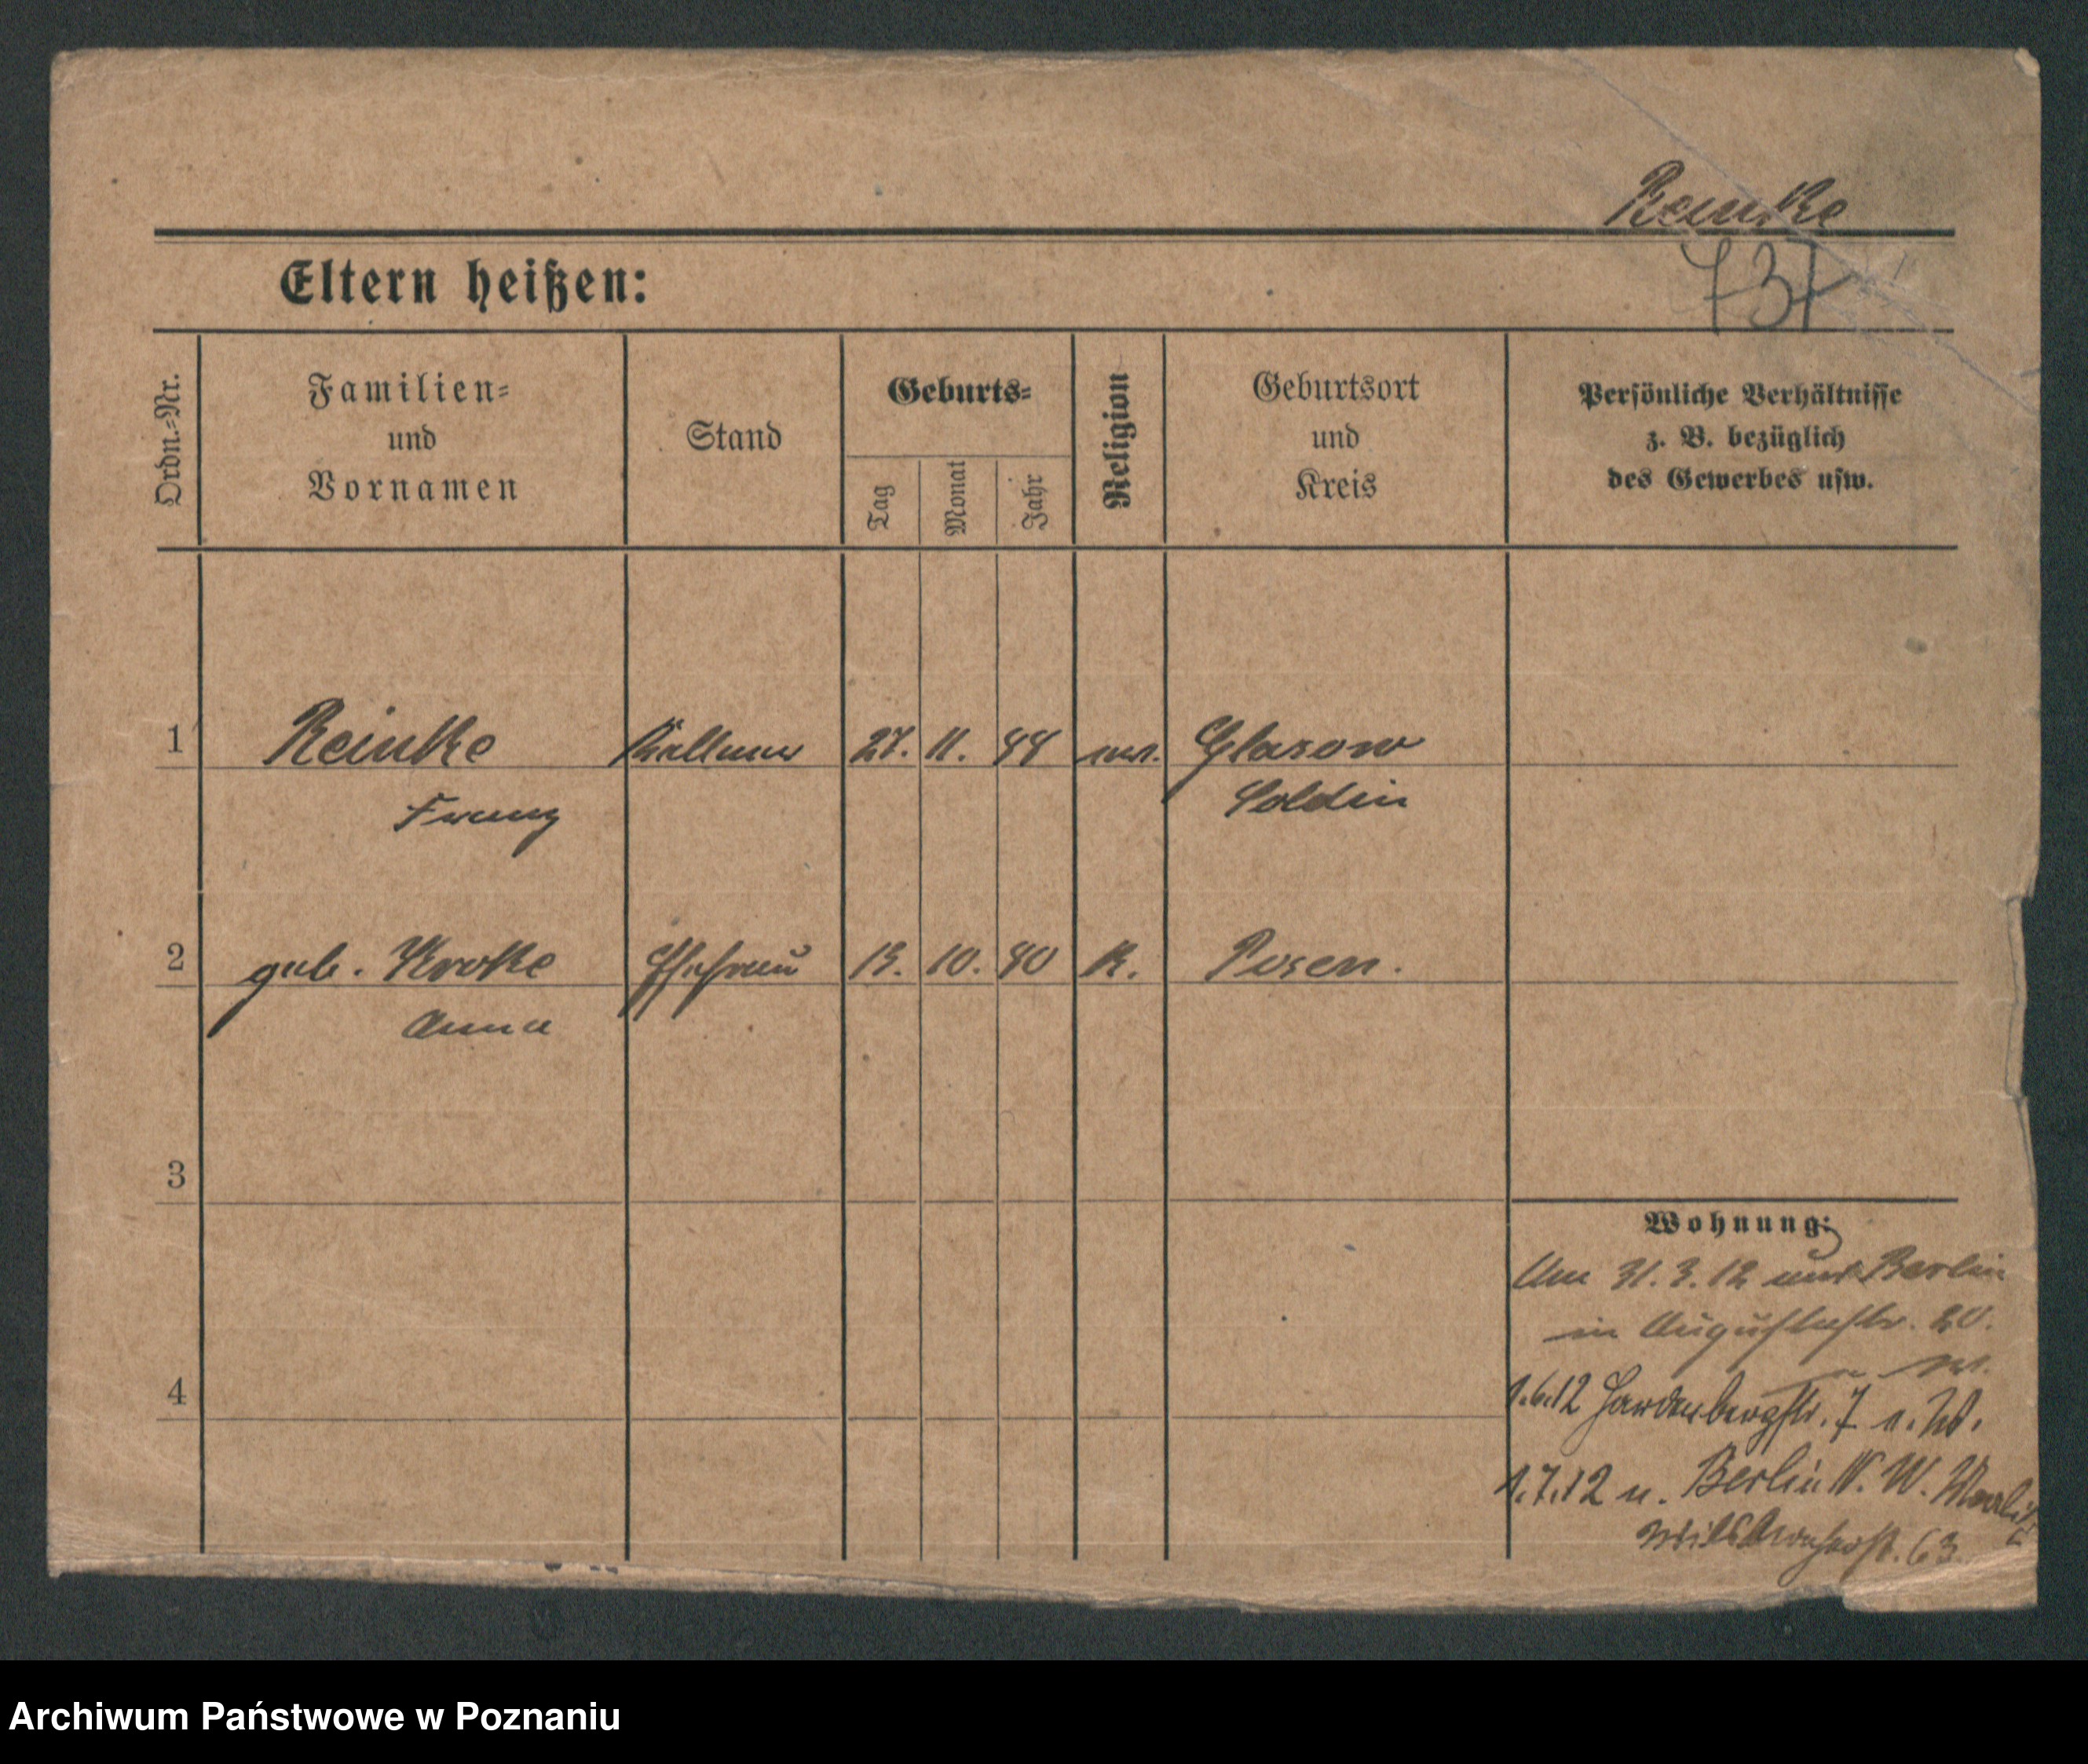 Reinke
737
Eltern heißen:
Ordn.-Nr.
Familien-
und
Vornamen
Stand
Geburts-
Tag
Monat
Jahr
Religion
Geburtsort
und
Kreis
Persönliche Verhältnisse
z. B. bezüglich
des Gewerbes usw.
1 Reinke Kellner 27. 11. 88 ev. Glasow
Franz Soldin
2 geb. Kroke Ehefrau 13. 10. 80 K. Posen.
Anna
3
Wohnung:
Am 31.3.12 nach Berlin
in Augustastr. 20.
4
1.6.12 Hardenbergstr. 7 v. W.
1.7.12 n. Berlin N. W.
Wilsnackerstr. 63
Archiwum Państwowe w Poznaniu